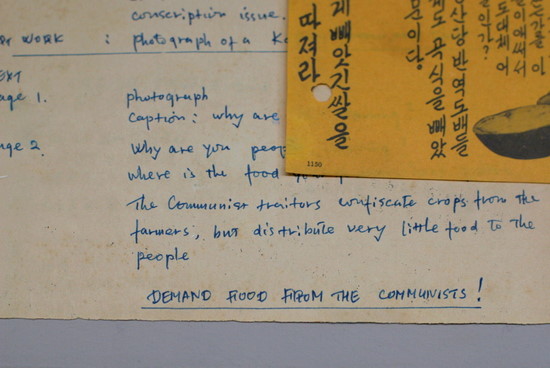 conscription issue.
WORK : photograph of a
EXT
age 1. photograph
Caption: why are
age 2. Why are you peop
where is the food
The Communist traitors confiscate crops from the
farmers, but distribute very little food to the
people
DEMAND FOOD FROM THE COMMUNISTS!
들이애써서
도대체 어
산당반역도배들
도 곡식을 빼았
문이당
게 빼앗긴쌀을
따져라
1150